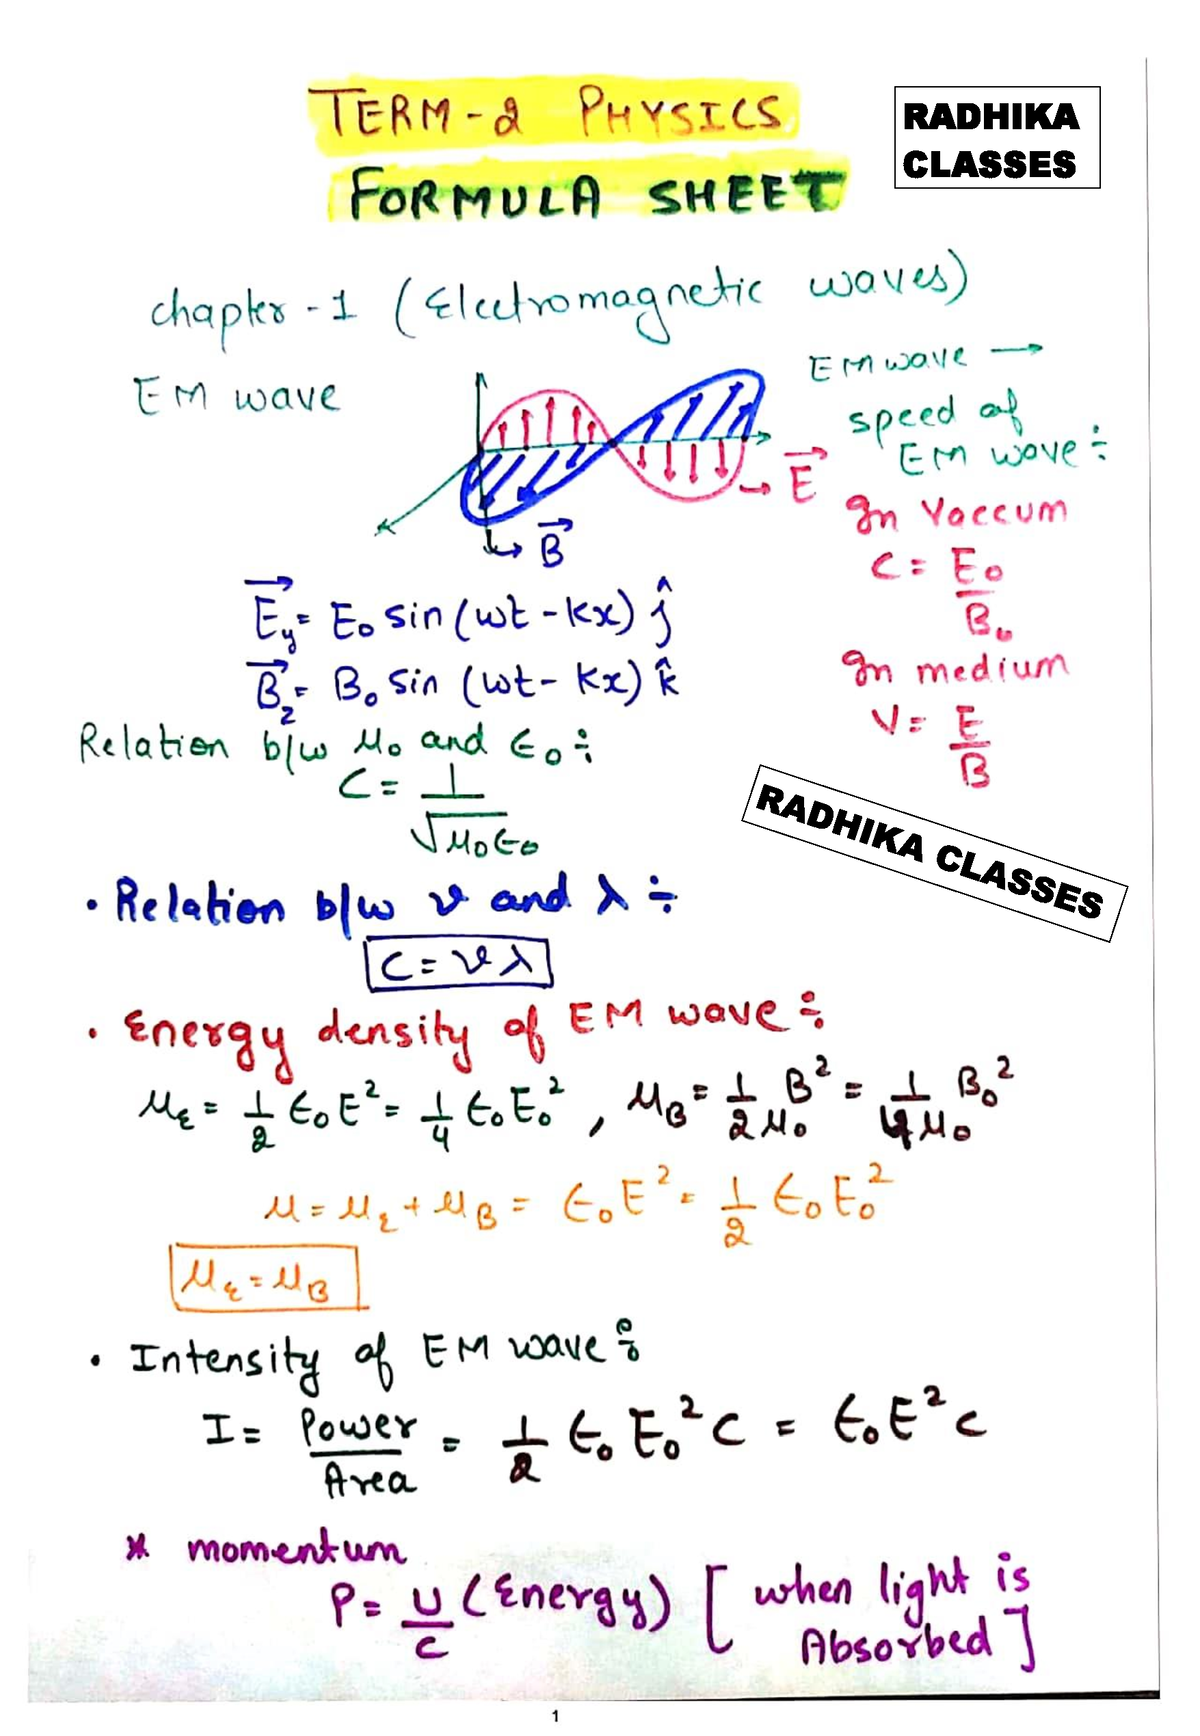 TERM-2 PHYSICS
FORMULA SHEET
RADHIKA
CLASSES
chapter-1 (Electromagnetic waves)
EM wave
E⃗
B⃗
EM wave →
speed of
EM wave ÷
In Vaccum
C = E₀/B₀
In medium
V = E/B
E⃗y = E₀ sin (wt - kx) ĵ
B⃗z = B₀ sin (wt - kx) k̂
Relation b/w μ₀ and ε₀ ÷
C = 1/√μ₀ε₀
RADHIKA CLASSES
• Relation b/w ν and λ ÷
C = νλ
• Energy density of EM wave ÷
μE = 1/2 ε₀E² = 1/4 ε₀E₀² , μB = 1/2μ₀ B² = 1/4μ₀ B₀²
μ = μE + μB = ε₀E² = 1/2 ε₀E₀²
μE = μB
• Intensity of EM wave ÷
I = Power/Area = 1/2 ε₀E₀²C = ε₀E²C
* momentum
P = U/C (Energy) [when light is
Absorbed]
1